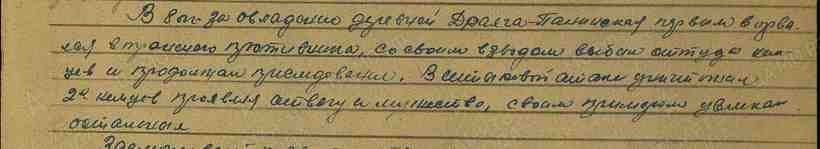 В бою за овладение деревней Драега-Паличская первым ворва-
лся в траншею противника, со своим взводом выбил оттуда нем-
цев и продолжал преследование. В штыковой атаке уничтожил
2х немцев проявляя отвагу и мужество, своим примером увлекал
остальных